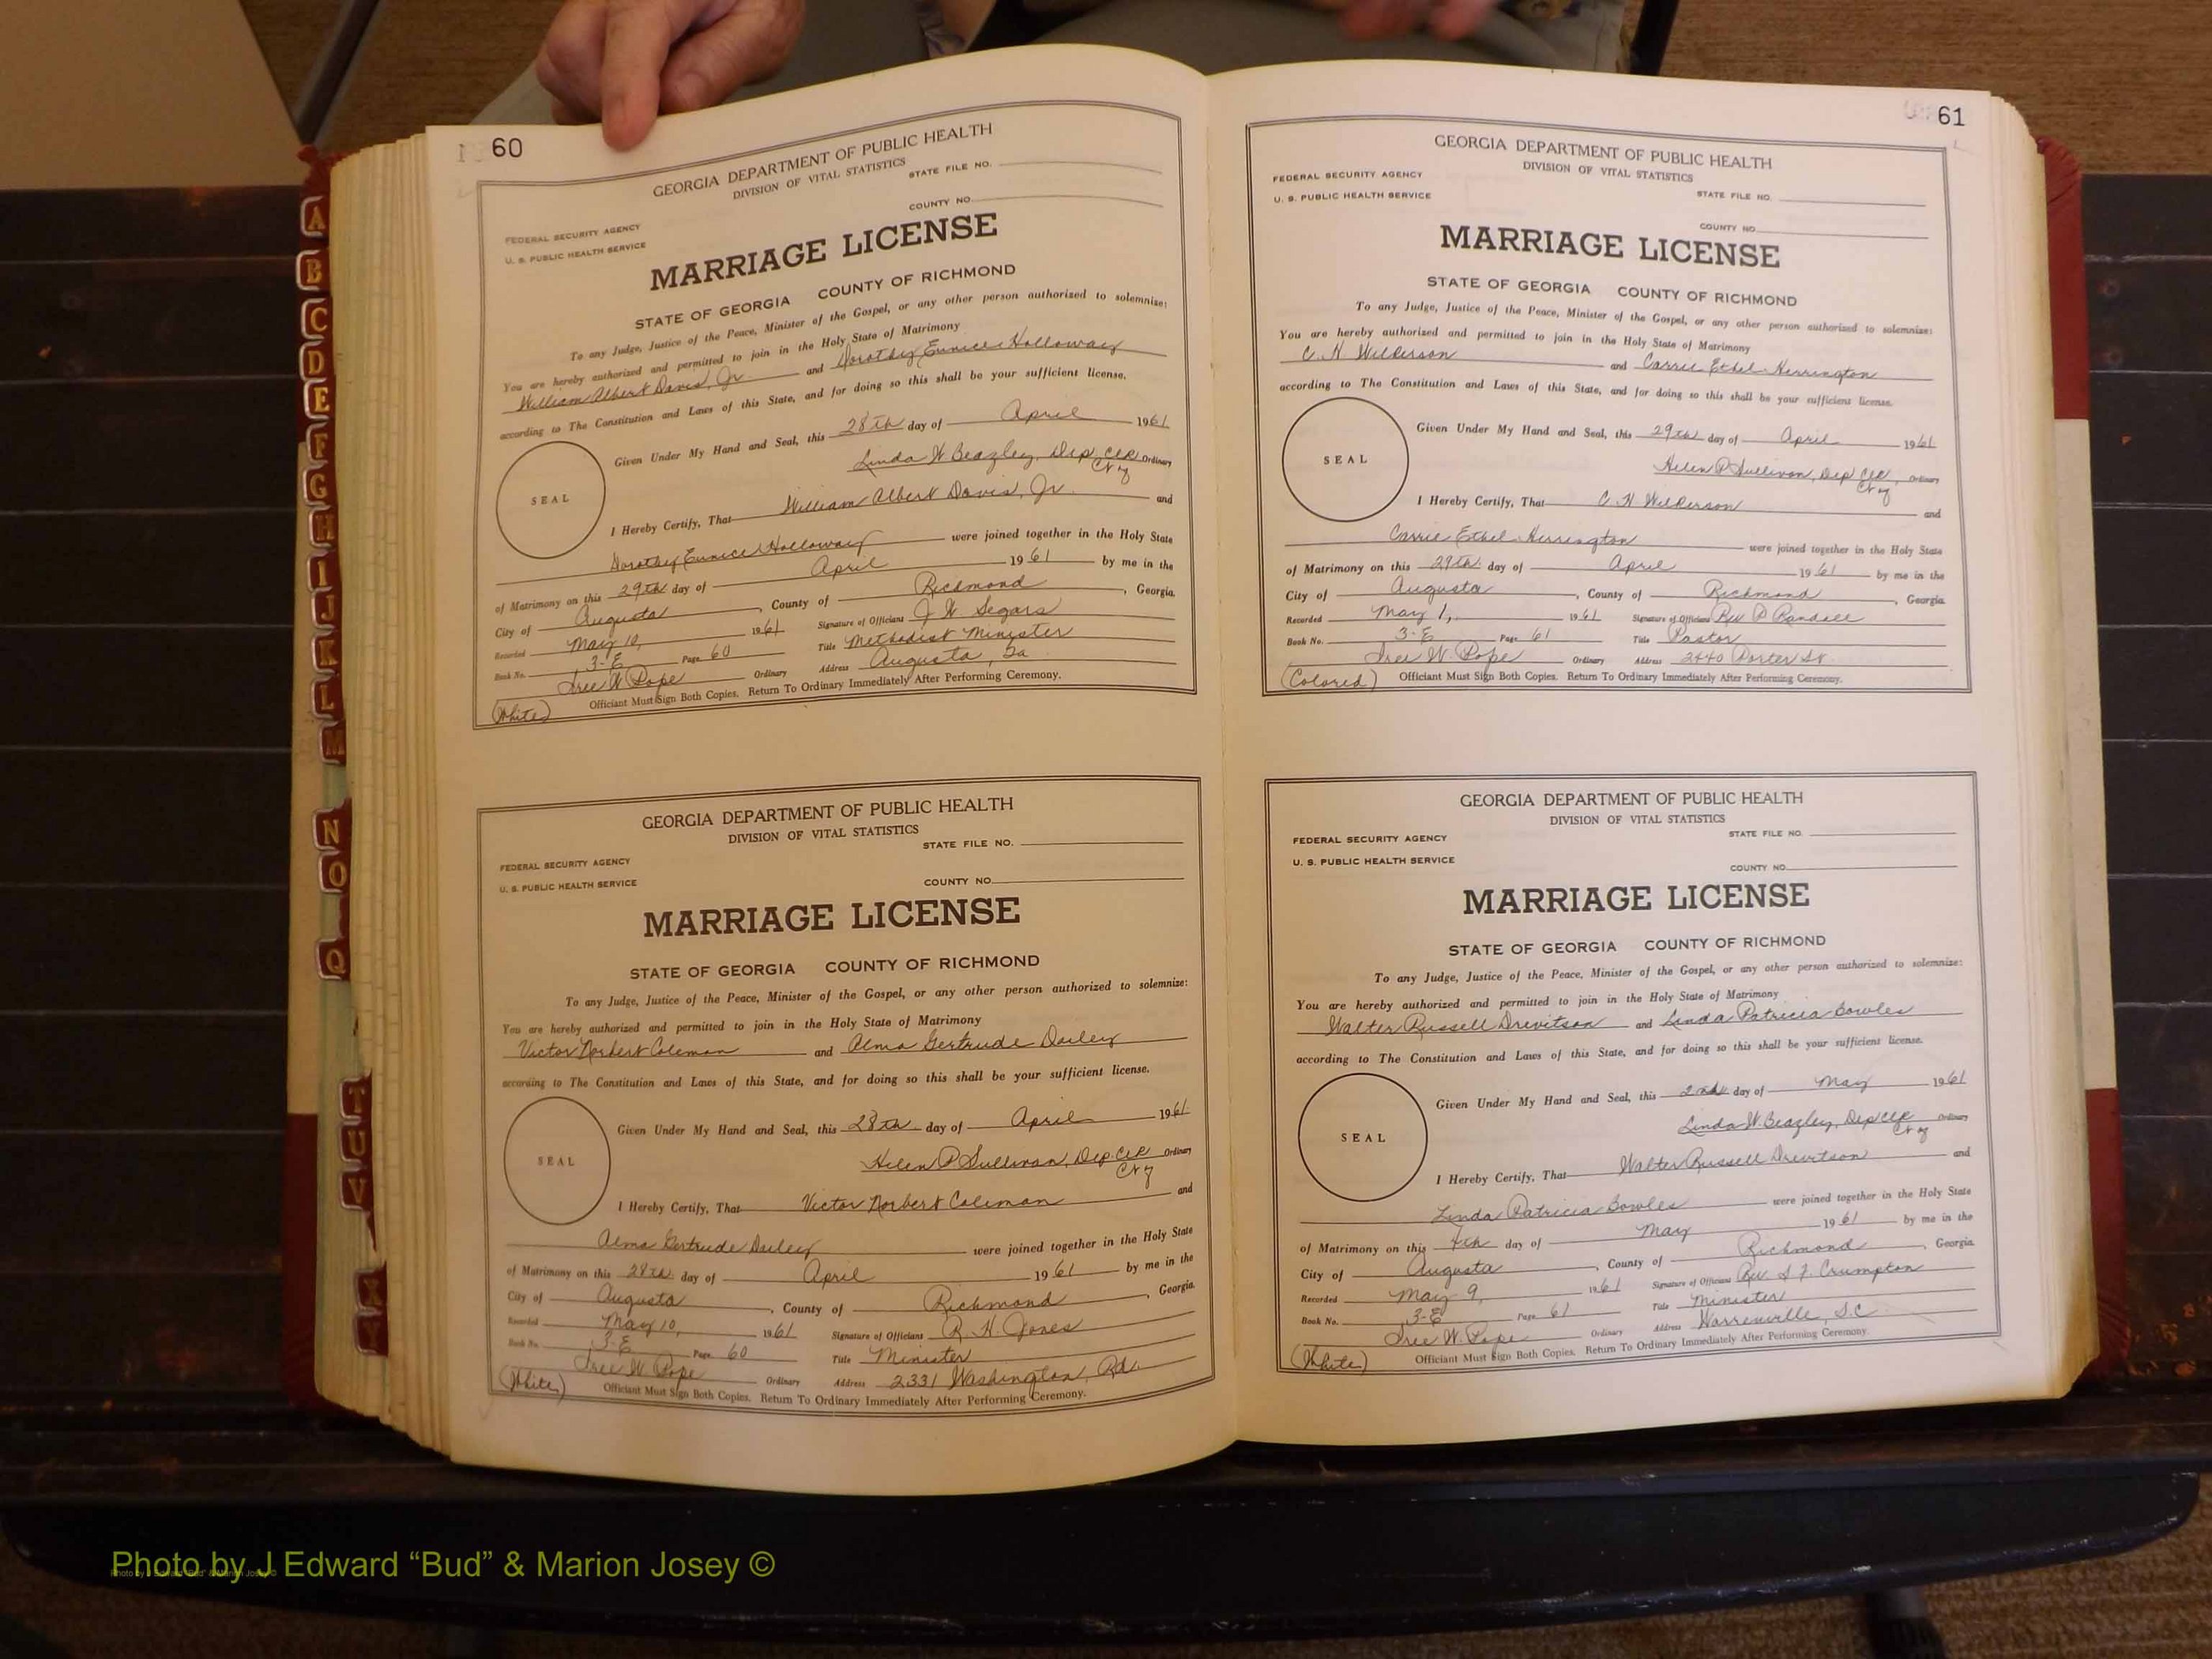 60
GEORGIA DEPARTMENT OF PUBLIC HEALTH
DIVISION OF VITAL STATISTICS
STATE FILE NO.
FEDERAL SECURITY AGENCY
COUNTY NO.
U. S. PUBLIC HEALTH SERVICE
MARRIAGE LICENSE
STATE OF GEORGIA COUNTY OF RICHMOND
To any Judge, Justice of the Peace, Minister of the Gospel, or any other person authorized to solemnize:
You are hereby authorized and permitted to join in the Holy State of Matrimony
William Albert Davis, Jr. and Dorothy Eunice Holloway
according to The Constitution and Laws of this State, and for doing so this shall be your sufficient license.
Given Under My Hand and Seal, this 28th day of April 1961
Linda W Beazley, Dep Clk Ordinary
SEAL
I Hereby Certify, That William Albert Davis, Jr. and
Dorothy Eunice Holloway were joined together in the Holy State
of Matrimony on this 29th day of April 1961 by me in the
City of Augusta, County of Richmond, Georgia.
Recorded May 10, 1961 Signature of Officiant J W Segars
Book No. 3-E Page 60 Title Methodist Minister
Tree W Pope Ordinary Address Augusta, Ga
(White) Officiant Must Sign Both Copies. Return To Ordinary Immediately After Performing Ceremony.
GEORGIA DEPARTMENT OF PUBLIC HEALTH
DIVISION OF VITAL STATISTICS
STATE FILE NO.
FEDERAL SECURITY AGENCY
U. S. PUBLIC HEALTH SERVICE
COUNTY NO.
MARRIAGE LICENSE
STATE OF GEORGIA COUNTY OF RICHMOND
To any Judge, Justice of the Peace, Minister of the Gospel, or any other person authorized to solemnize:
You are hereby authorized and permitted to join in the Holy State of Matrimony
Victor Norbert Coleman and Alma Gertrude Dailey
according to The Constitution and Laws of this State, and for doing so this shall be your sufficient license.
Given Under My Hand and Seal, this 28th day of April 1961
Helen P Sullivan, Dep. Clk Ordinary
SEAL
I Hereby Certify, That Victor Norbert Coleman and
Alma Gertrude Dailey were joined together in the Holy State
of Matrimony on this 28th day of April 1961 by me in the
City of Augusta, County of Richmond, Georgia.
Recorded May 10, 1961 Signature of Officiant R. H. Jones
Book No. 3-E Page 60 Title Minister
Tree W Pope Ordinary Address 2331 Washington, Rd.
(White) Officiant Must Sign Both Copies. Return To Ordinary Immediately After Performing Ceremony.
61
GEORGIA DEPARTMENT OF PUBLIC HEALTH
DIVISION OF VITAL STATISTICS
FEDERAL SECURITY AGENCY
U. S. PUBLIC HEALTH SERVICE
STATE FILE NO.
COUNTY NO.
MARRIAGE LICENSE
STATE OF GEORGIA COUNTY OF RICHMOND
To any Judge, Justice of the Peace, Minister of the Gospel, or any other person authorized to solemnize:
You are hereby authorized and permitted to join in the Holy State of Matrimony
C. H. Wilkerson and Carrie Ethel Herrington
according to The Constitution and Laws of this State, and for doing so this shall be your sufficient license.
Given Under My Hand and Seal, this 29th day of April 1961
Helen P Sullivan, Dep Clk, Ordinary
SEAL
I Hereby Certify, That C H Wilkerson and
Carrie Ethel Herrington were joined together in the Holy State
of Matrimony on this 29th day of April 1961 by me in the
City of Augusta, County of Richmond, Georgia.
Recorded May 1, 1961 Signature of Officiant Rev P Randall
Book No. 3-E Page 61 Title Pastor
Tree W. Pope Ordinary Address 2440 Porter St
(Colored) Officiant Must Sign Both Copies. Return To Ordinary Immediately After Performing Ceremony.
GEORGIA DEPARTMENT OF PUBLIC HEALTH
DIVISION OF VITAL STATISTICS
FEDERAL SECURITY AGENCY
STATE FILE NO.
U. S. PUBLIC HEALTH SERVICE
COUNTY NO.
MARRIAGE LICENSE
STATE OF GEORGIA COUNTY OF RICHMOND
To any Judge, Justice of the Peace, Minister of the Gospel, or any other person authorized to solemnize:
You are hereby authorized and permitted to join in the Holy State of Matrimony
Walter Russell Drevitson and Linda Patricia Bowles
according to The Constitution and Laws of this State, and for doing so this shall be your sufficient license.
Given Under My Hand and Seal, this 2nd day of May 1961
Linda W. Beazley, Dep Clk Ordinary
SEAL
I Hereby Certify, That Walter Russell Drevitson and
Linda Patricia Bowles were joined together in the Holy State
of Matrimony on this 4th day of May 1961 by me in the
City of Augusta, County of Richmond, Georgia.
Recorded May 9, 1961 Signature of Officiant Rev. S F. Crumpton
Book No. 3-E Page 61 Title Minister
Tree W. Pope Ordinary Address Warrenville, S.C
(White) Officiant Must Sign Both Copies. Return To Ordinary Immediately After Performing Ceremony.
A
B
C
D
E
F
G
H
I
J
K
L
M
N
O
Q
T
U
V
X
Y
Photo by J Edward “Bud” & Marion Josey ©